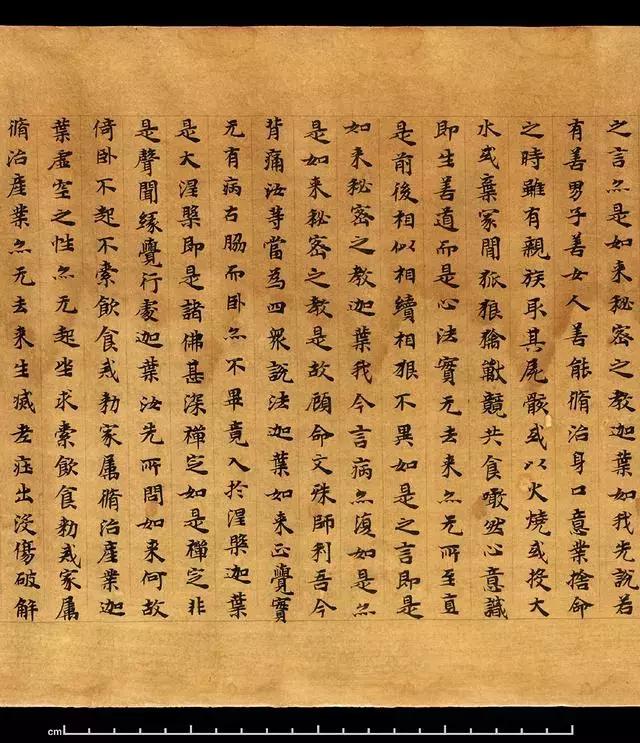 之言亦是如来秘密之教迦葉如我先說若
有善男子善女人善能脩治身口意業捨命
之時雖有親族取其屍骸或以火燒或投大
水或棄冢間狐狼獦獸競共食噉然心意識
即生善道而是心法實无去来亦无所至直
是前後相似相續相貌不異如是之言即是
如来秘密之教迦葉我今言病亦復如是亦
是如来秘密之教是故顧命文殊師利吾今
背痛汝等當為四眾說法迦葉如来正覺實
无有病右脇而卧亦不畢竟入於涅槃迦葉
是大涅槃即是諸佛甚深禪定如是禪定非
是聲聞緣覺行處迦葉汝先所問如来何故
倚卧不起不索飲食戒勑家属脩治產業迦
葉虛空之性亦无起坐求索飲食勑戒家属
脩治產業亦无去来生滅老壯出没傷破解
cm